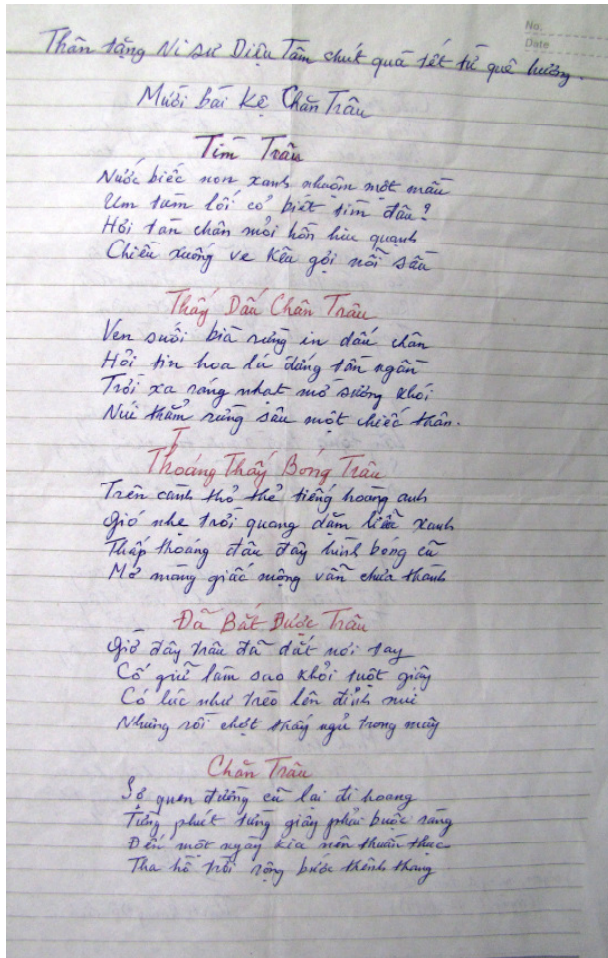 No.
Date
Thân tặng Ni sư Diệu Tâm chút quà tết từ quê hương.
Mười bài kệ Chăn Trâu
Tìm Trâu
Nước biếc non xanh nhuộm một màu
Um tùm lối cỏ biết tìm đâu?
Hơi tàn chân mỏi hồn hiu quạnh
Chiều xuống ve kêu gợi nỗi sầu
Thấy Dấu Chân Trâu
Ven suối bià rừng in dấu chân
Hỏi tin hoa lá dáng tần ngần
Trời xa ráng nhạt mờ sương khói
Núi thẳm rừng sâu một chiếc thân.
Thoáng Thấy Bóng Trâu
Trên cành thỏ thẻ tiếng hoàng anh
Gió nhẹ trời quang dặm liễu xanh
Thấp thoáng đâu đây hình bóng cũ
Mơ màng giấc mộng vẫn chưa thành
Đã Bắt Được Trâu
Giờ đây trâu đã dắt nơi tay
Cố giữ làm sao khỏi tuột giây
Có lúc như trèo lên đỉnh núi
Nhưng rồi chợt thấy ngủ trong mây
Chăn Trâu
Sợ quen đường cũ lại đi hoang
Từng phút từng giây phải buộc ràng
Đến một ngày kia nên thuần thục
Tha hồ trời rộng bước thênh thang